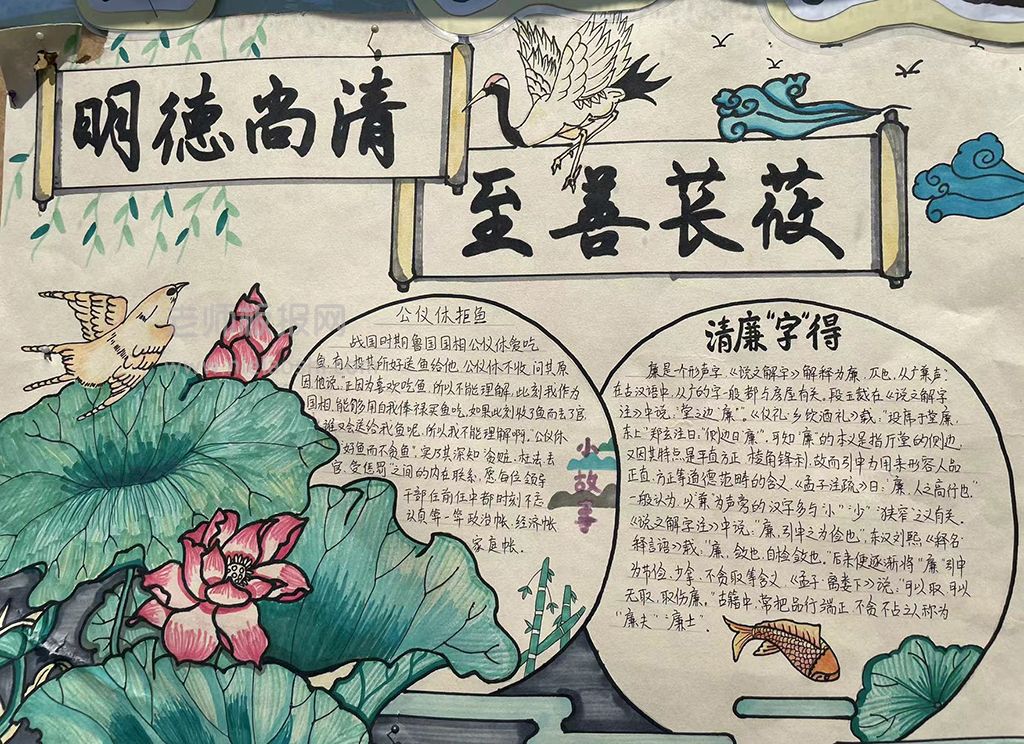 明德尚清
至善苌莜
公仪休拒鱼
战国时期鲁国国相公仪休爱吃
鱼,有人投其所好送鱼给他,公仪休不收,问其原
因,他说,正因为喜欢吃鱼,所以不能理解,此刻我作为
国相,能够用自我俸禄买鱼吃,如果此刻收了鱼而去了官,
谁又会送给我鱼呢,所以我不能理解啊。公仪休
好鱼而不贪鱼",实乃其深知"贪赃、枉法去
官、受惩罚"之间的内在联系,愿每位领导
干部在前任中都时刻不忘
认真算一笔政治帐、经济帐
家庭帐。
小故事
清廉"字"得
廉是一个形声字,《说文解字》解释为"廉,仄也,从广兼声"
在古汉语中,从广的字一般都与房屋有关。段玉裁在《说文解字
注》中说,"堂之边"廉"。《仪礼·乡饮酒礼》载:"设席于堂廉,
东上"郑玄注曰:"侧边曰廉",可知"廉"的本义是指厅堂的侧边,
又因其特点是平直方正、棱角锋利,故而引申为用来形容人品
正直、方正等道德范畴的含义。《孟子注疏》曰:"廉,人之高行也。"
一般认为,以"兼"为声旁的汉字多与"小""少""狭窄"之义有关。
《说文解字注》中说:"廉,引申之为俭也",东汉刘熙《释名·
释言语》载:"廉,敛也,自检敛也。"后来便逐渐将"廉"引申
为节俭、少拿、不贪取等含义。《孟子·离娄下》说:"可以取,可以
无取,取伤廉。"古籍中,常把品行端正、不贪不占之人称为
"廉夫"、"廉士"。